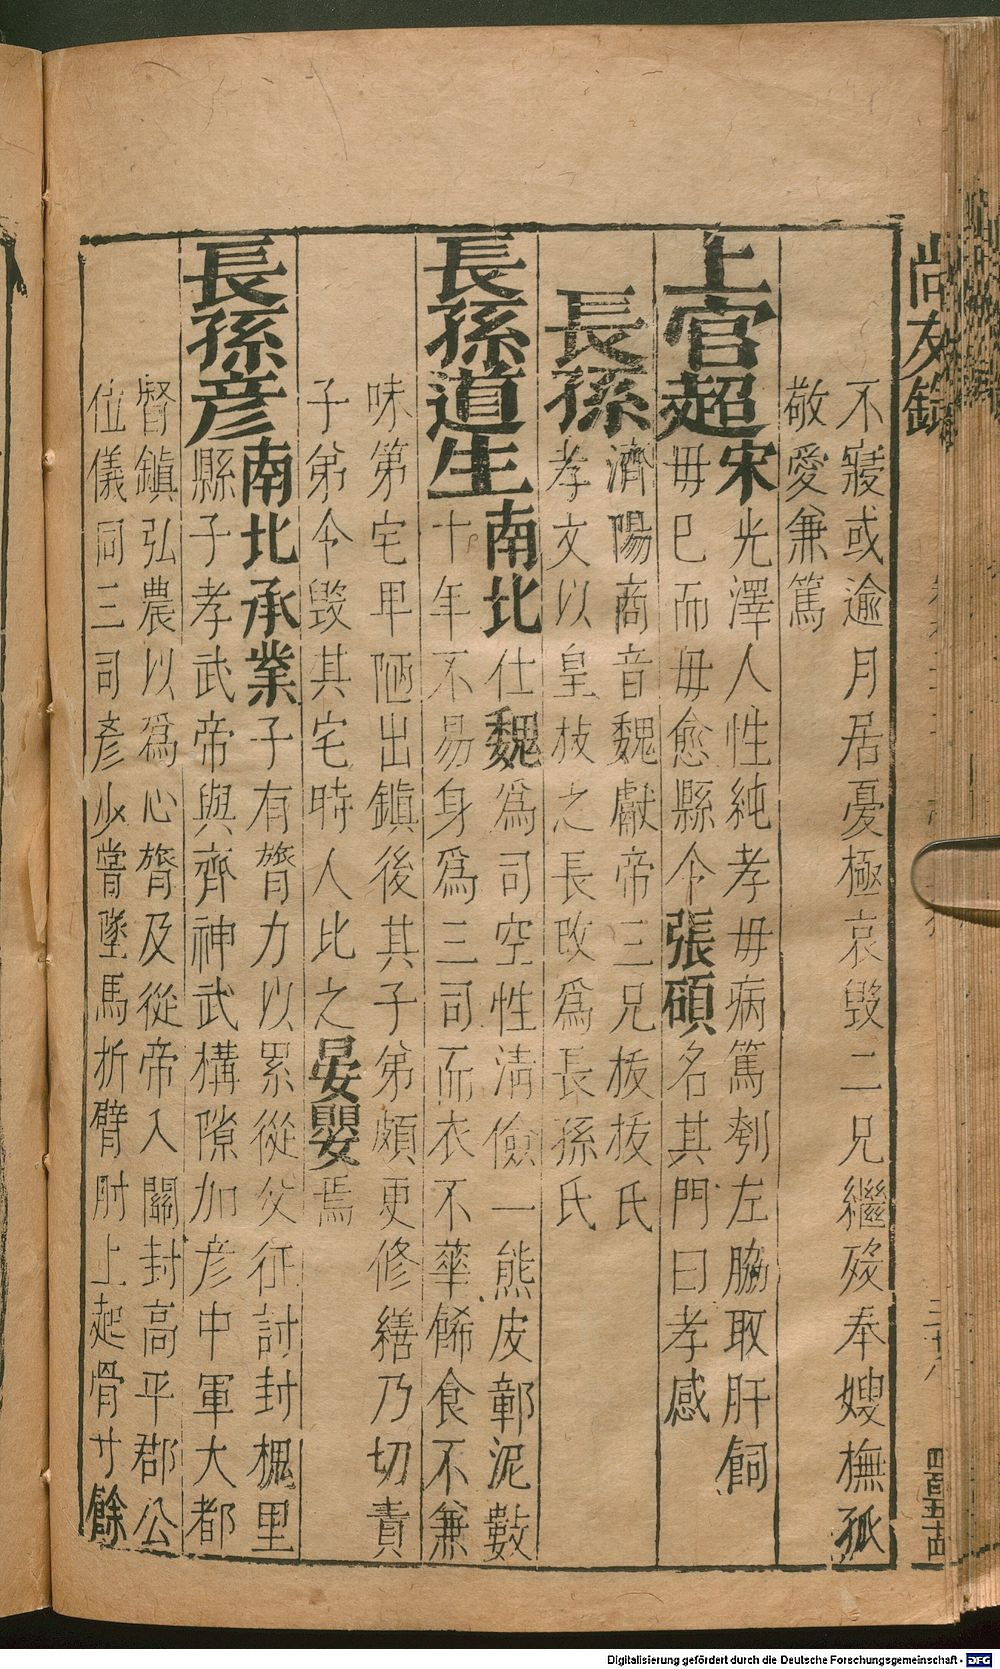 尚友錄
不寢或逾月居憂極哀毀二兄繼歿奉嫂撫孤
敬愛兼篤
上官超宋光澤人性純孝毋病篤刳左脇取肝飼
毋巳而毋愈縣令張碩名其門曰孝感
長孫濟陽商音魏獻帝三兄拔拔氏
孝文以皇枝之長改爲長孫氏
長孫道生南北仕魏爲司空性清儉一熊皮鄣泥數
十年不易身爲三司而衣不華餙食不兼
味第宅甲陋出鎮後其子弟頗更修繕乃切責
子弟令毀其宅時人比之晏嬰焉
長孫彦南北承業子有膂力以累從父征討封槐里
縣子孝武帝與齊神武構隙加彦中軍大都
督鎮弘農以爲心膂及從帝入關封高平郡公
位儀同三司彦少嘗墜馬折臂肘上起骨寸餘
Digitalisierung gefördert durch die Deutsche Forschungsgemeinschaft - DFG